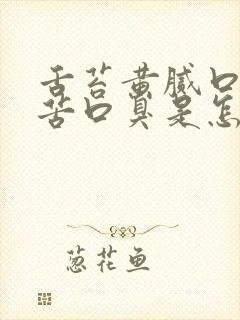 舌苔黄腻口
苦口臭是怎
葱花鱼